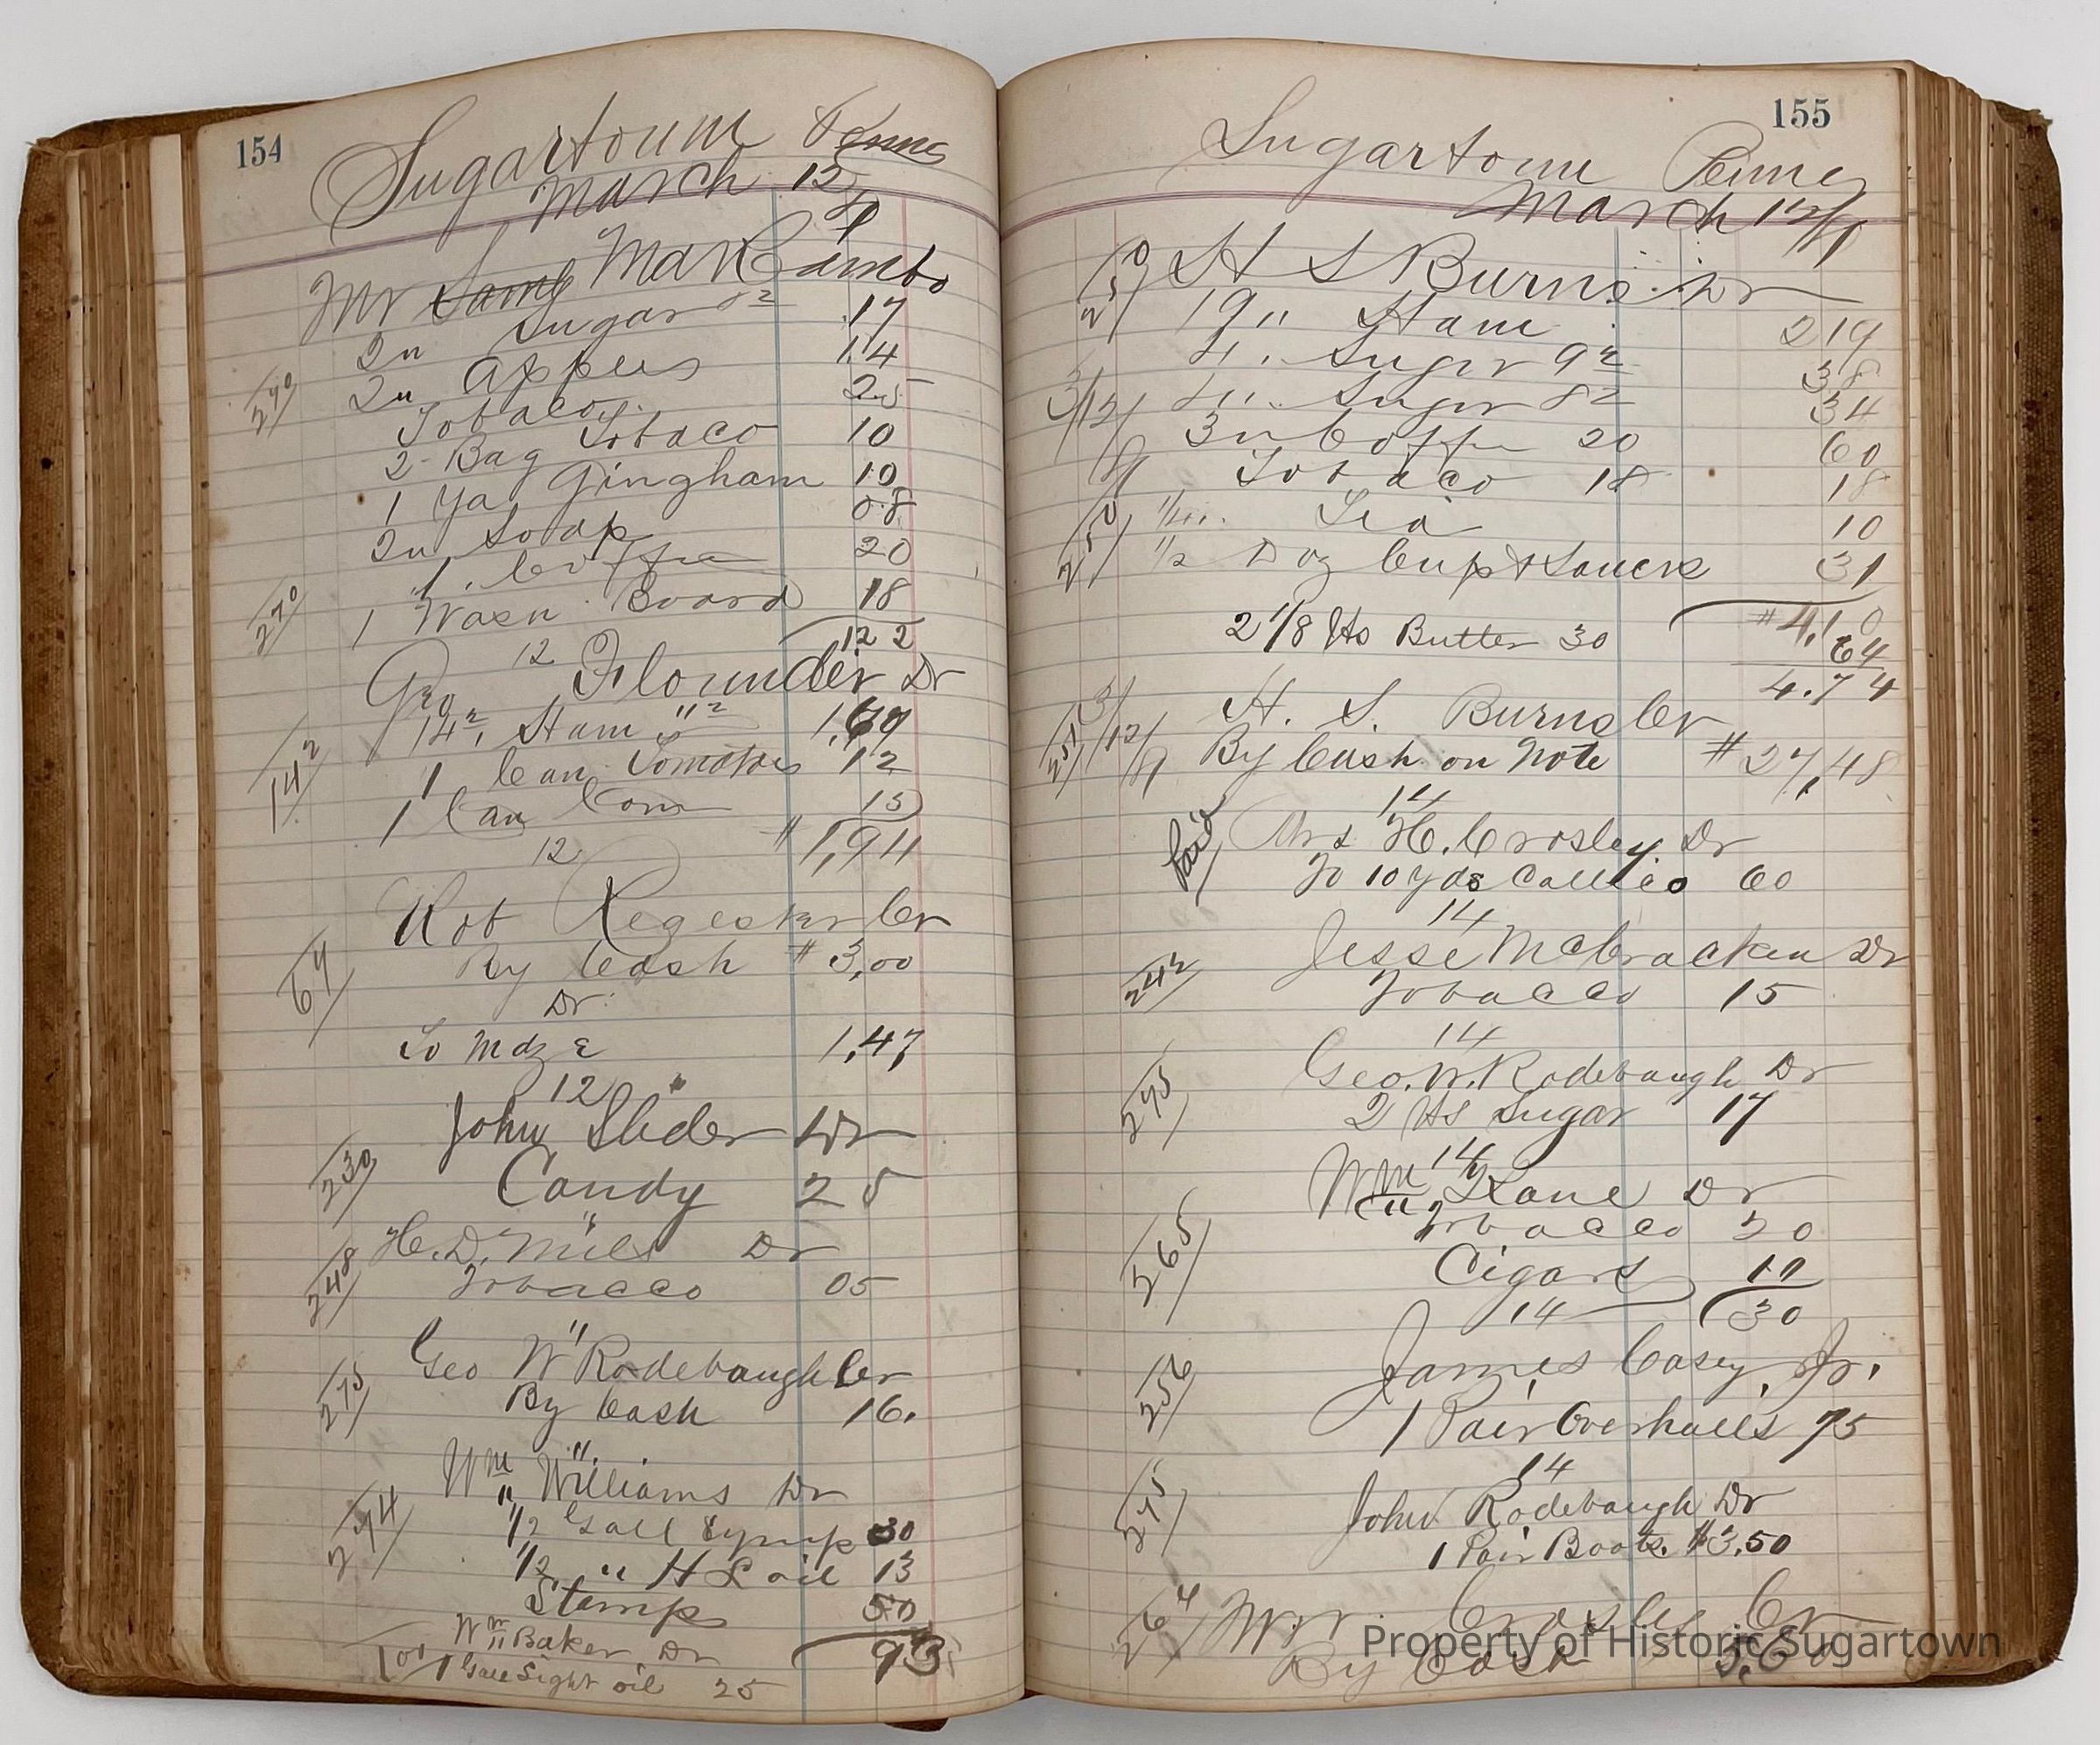 154
Sugartown Penna
March 12/91
Mr Saml McKimbo
2 " Sugar 8½ 17
2 " Apples 14
240
Tobaco 25
2 Bag Tobaco 10
1 Yd Gingham 10
2 " Soap 08
1 " Coffee 20
270
1 Wash Board 18
1 22
12
Geo Flounder Dr
14² " Ham
142
1 Can Tomatoes 12
1 Can Corn 15
# 1,94
12
Rob Regester Cr
64
By Cash # 3,00
Dr
To Mdze 1,47
12
John Slider Dr
230
Candy 25
"
H. D. Miles Dr
248
Tobacco 05
"
Geo W Rodebaugh Cr
275
By Cash 16.
"
Wm Williams Dr
274
1/2 Gall Syrup 30
1/2 " H L oil 13
Stamps 50
93
Wm Baker Dr
100
1 Gall Light oil 25
155
Sugartown Penna
March 12/91
250
H S Burns Dr
19 " Ham 219
4 " Suger 9½ 38
3/12/91
4 " Suger 8½ 34
3 " Coffee 20 60
Tobaco 18 18
250
1/4 " Tea 10
1/2 Doz Cups & Saucrs 31
# 4,10
2 1/8 lbs Butter 30 64
4.74
251
3/12/91
H. S. Burns Cr
By Cash on Note # 27,48
14
Paid
Mrs H. Crosley Dr
To 10 yds Callico 60
14
Jesse McCracken Dr
242
Tobacco 15
14
Geo. W. Rodebaugh Dr
275
2 lbs Sugar 17
14
Wm Kane Dr
265
Tobacco 20
Cigars 10
30
14
James Casey, Jr.
256
1 Pair Overhalls 75
14
John Rodebaugh Dr
275
1 Pair Boots. $3.50
264
Wm. Crosley Cr
By Cash
Property of Historic Sugartown